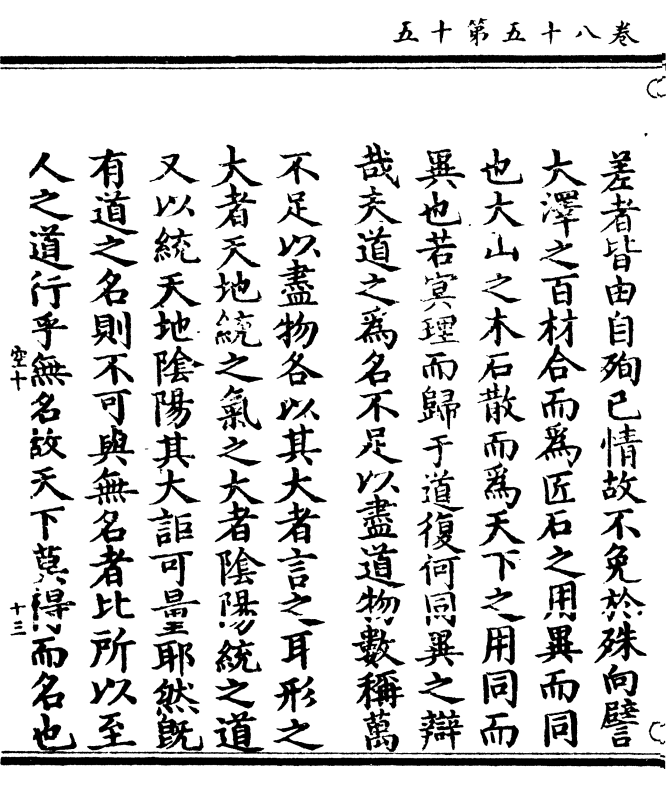 卷八十五第十五
差者皆由自殉已情故不免於殊向譬
大澤之百材合而為匠石之用異而同
也大山之木石散而為天下之用同而
異也若㝠理而歸于道復何同異之辯
哉夫道之為名不足以盡道物數稱萬
不足以盡物各以其大者言之耳形之
大者天地統之氣之大者陰陽統之道
又以統天地陰陽其大詎可量耶然旣
有道之名則不可與無名者比所以至
人之道行乎無名故天下莫得而名也
空十
十三